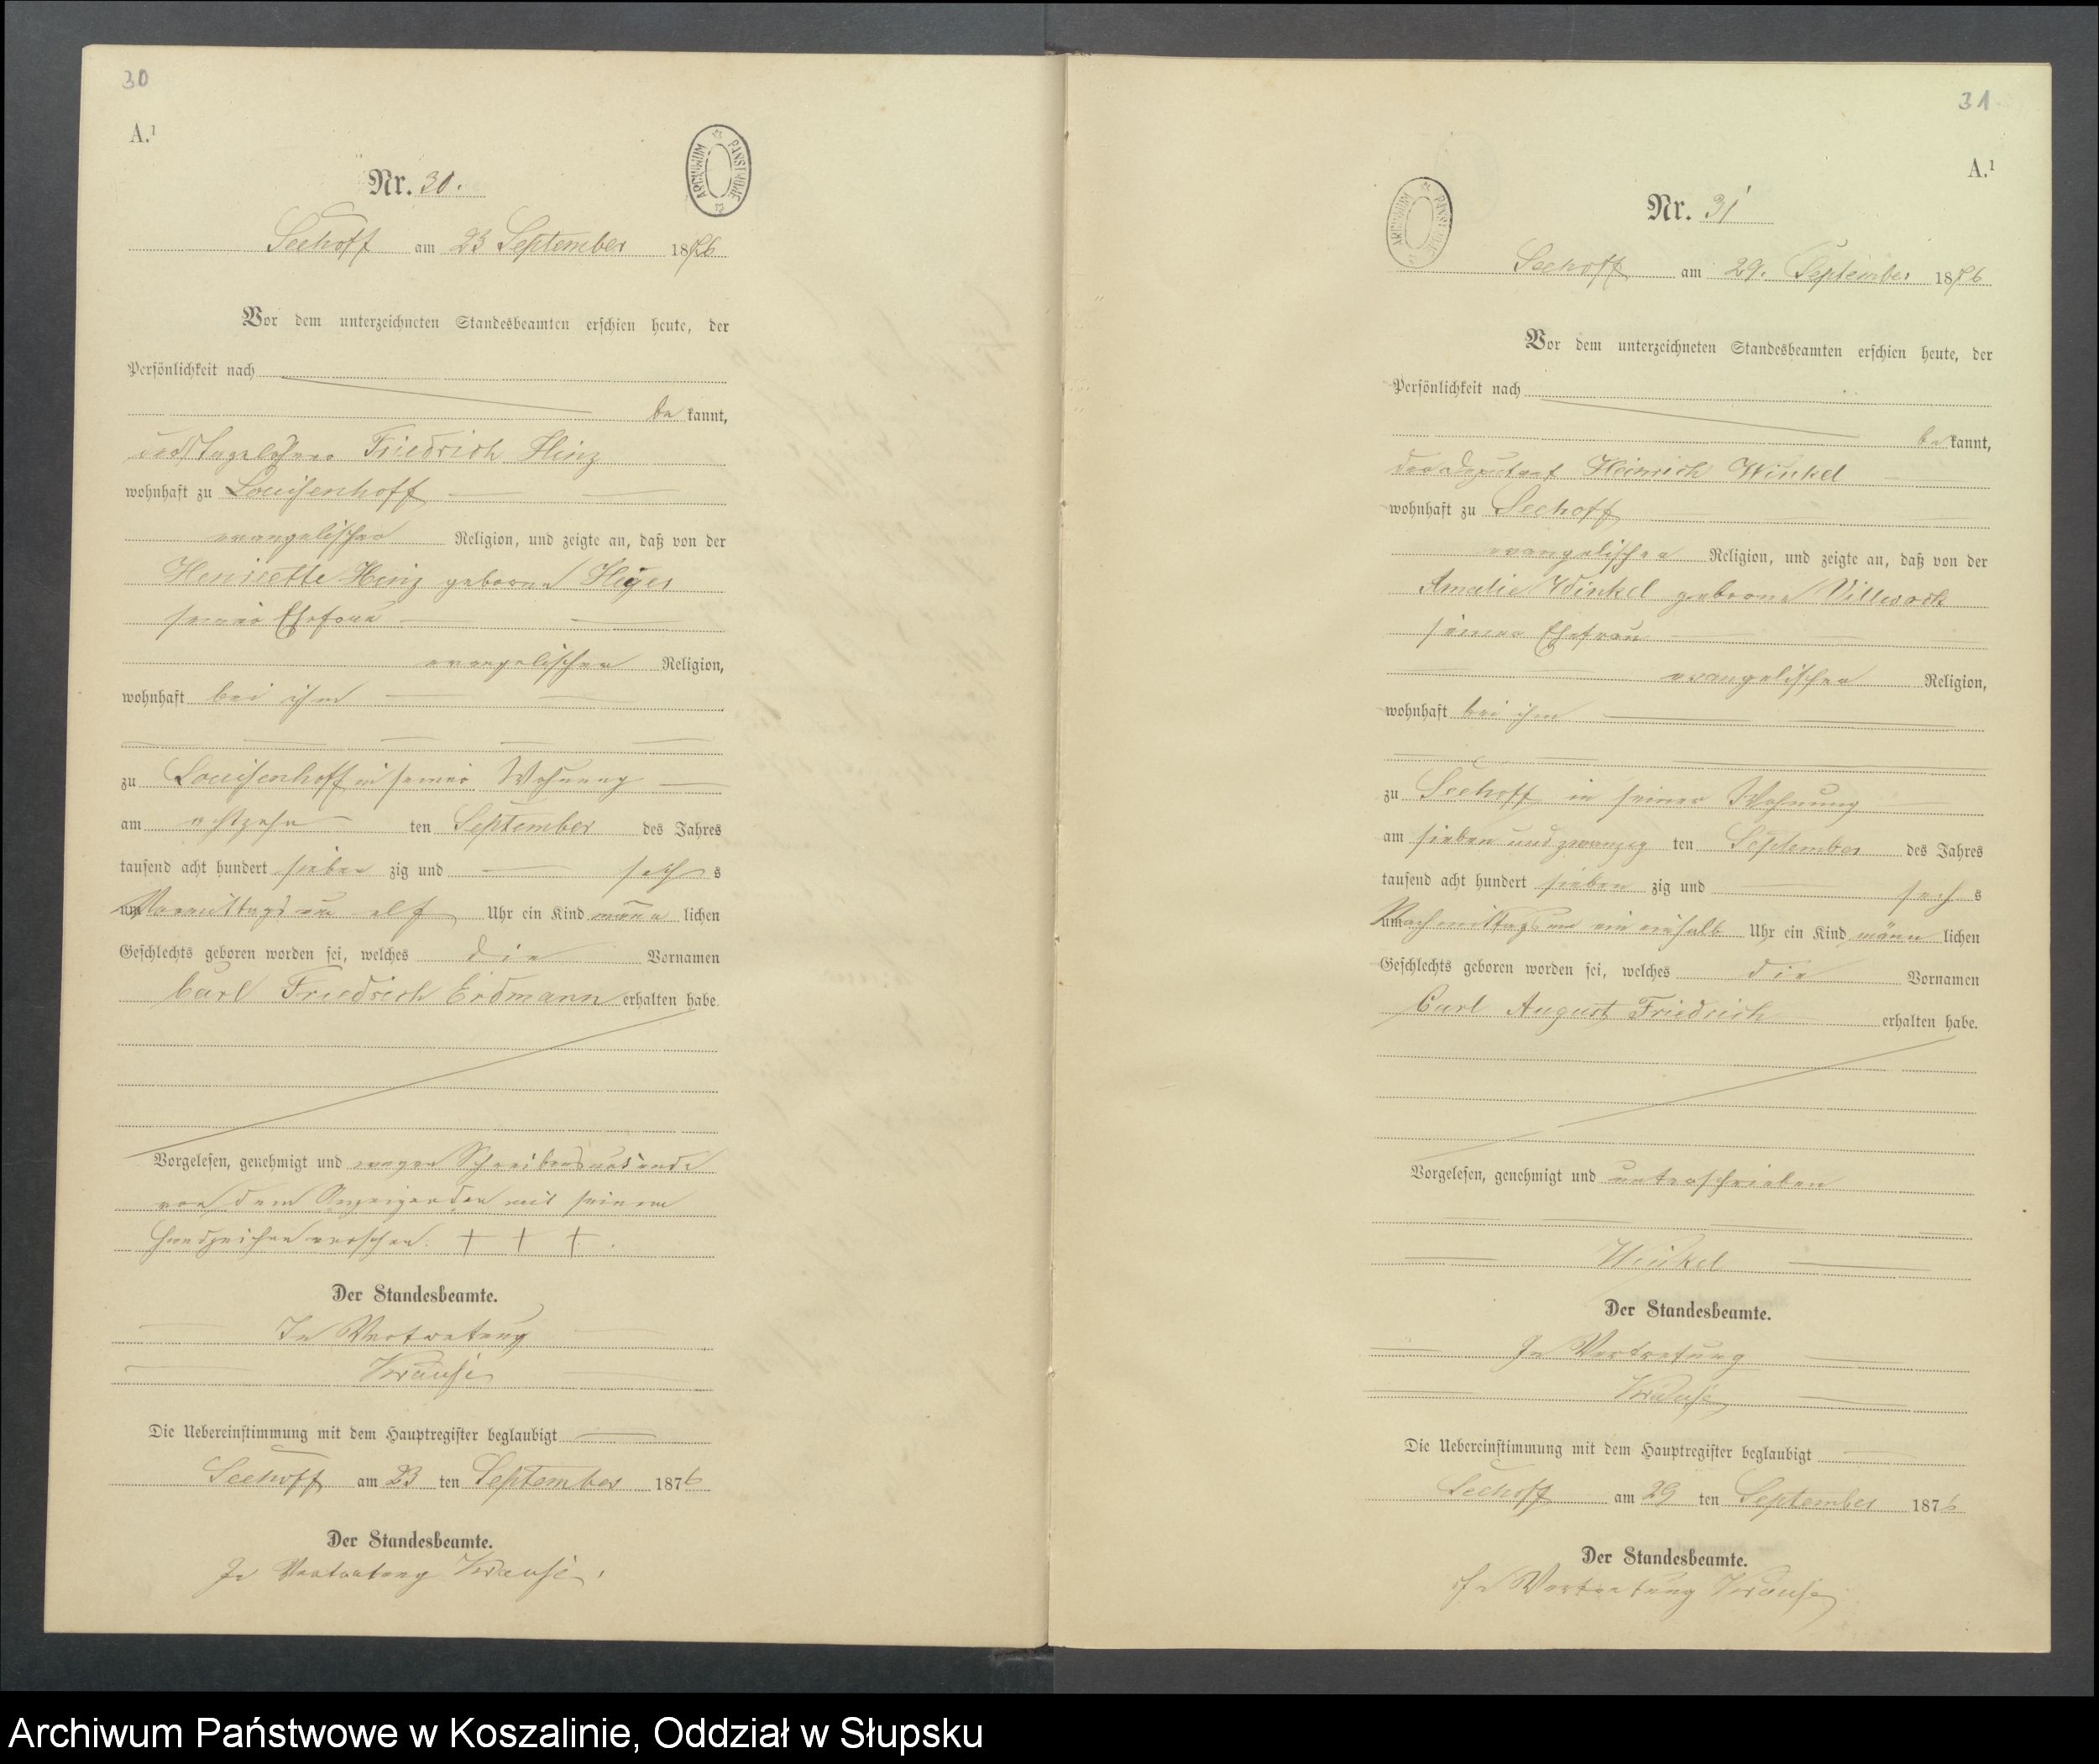 30
A.¹
ARCHIWUM PAŃSTWOWE
Nr. 30.
Seehoff am 23 September 1876
Vor dem unterzeichneten Standesbeamten erschien heute, der
Persönlichkeit nach
be kannt,
Friedrich Hinz
wohnhaft zu Louisenhoff
evangelischer Religion, und zeigte an, daß von der
Henriette Hinz geborne
seiner Ehefrau
evangelischer Religion,
wohnhaft bei ihm
zu Louisenhoff in seiner Wohnung
am achtzehn ten September des Jahres
tausend acht hundert sieben zig und sech s
Vormittags um elf Uhr ein Kind männ lichen
Geschlechts geboren worden sei, welches die Vornamen
Carl Friedrich Erdmann erhalten habe.
Vorgelesen, genehmigt und wegen Schreibensunkunde
von dem Anzeigenden mit seinem
Handzeichen versehen. + + +.
Der Standesbeamte.
In Vertretung
Krause
Die Uebereinstimmung mit dem Hauptregister beglaubigt
Seehoff am 23 ten September 1876
Der Standesbeamte.
In Vertretung Krause.
31
A.¹
ARCHIWUM PAŃSTWOWE
Nr. 31
Seehoff am 29. September 1876
Vor dem unterzeichneten Standesbeamten erschien heute, der
Persönlichkeit nach
be kannt,
der Deputant Heinrich Winkel
wohnhaft zu Seehoff
evangelischer Religion, und zeigte an, daß von der
Amalie Winkel geborne Villwock
seiner Ehefrau
evangelischer Religion,
wohnhaft bei ihm
zu Seehoff in seiner Wohnung
am sieben und zwanzig ten September des Jahres
tausend acht hundert sieben zig und sech s
Nachmittags um ein einhalb Uhr ein Kind männ lichen
Geschlechts geboren worden sei, welches die Vornamen
Carl August Friedrich erhalten habe.
Vorgelesen, genehmigt und unterschrieben
Winkel
Der Standesbeamte.
In Vertretung
Krause
Die Uebereinstimmung mit dem Hauptregister beglaubigt
Seehoff am 29 ten September 1876
Der Standesbeamte.
In Vertretung Krause
Archiwum Państwowe w Koszalinie, Oddział w Słupsku